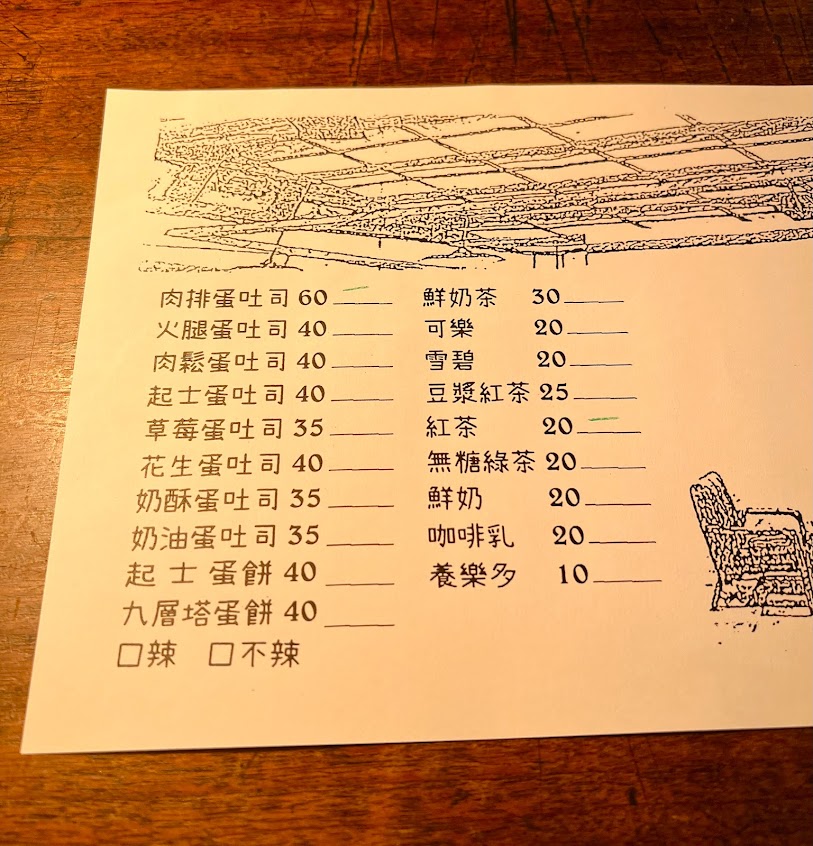 肉排蛋吐司 60
火腿蛋吐司 40
肉鬆蛋吐司 40
起士蛋吐司 40
草莓蛋吐司 35
花生蛋吐司 40
奶酥蛋吐司 35
奶油蛋吐司 35
起士蛋餅 40
九層塔蛋餅 40
□辣 □不辣
鮮奶茶 30
可樂 20
雪碧 20
豆漿紅茶 25
紅茶 20
無糖綠茶 20
鮮奶 20
咖啡乳 20
養樂多 10